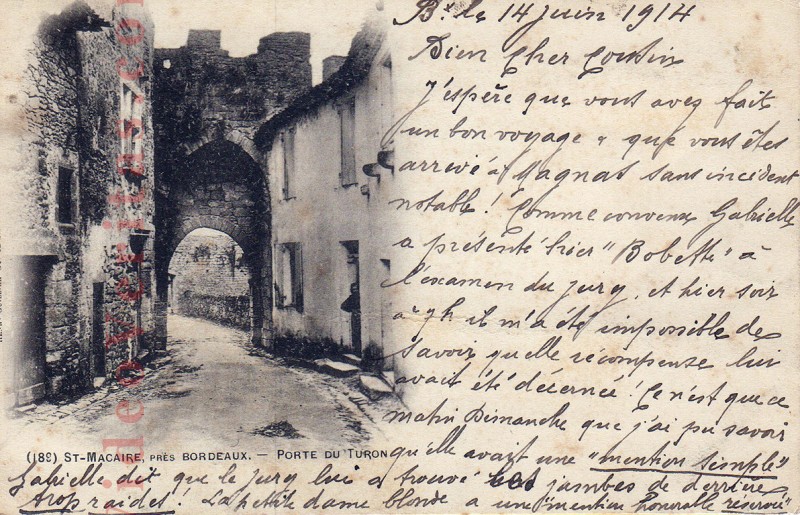 Bx. le 14 juin 1914
Bien Cher Cousin
J'espère que vous avez fait
un bon voyage & que vous êtes
arrivé à Magnat sans incident
notable! Comme convenu Gabrielle
a présenté hier "Bobette" à
l'examen du jury, et hier soir
à 9h il m'a été impossible de
savoir quelle récompense lui
avait été décernée! Ce n'est que ce
matin Dimanche que j'ai pu savoir
qu'elle avait une "mention simple"
Gabrielle dit que le jury lui a trouvé les jambes de derrière
trop raides! La petite dame blonde a une "mention honorable réservée"
(189) ST-MACAIRE, PRÈS BORDEAUX. — PORTE DU TURON
VideoVeritas.com